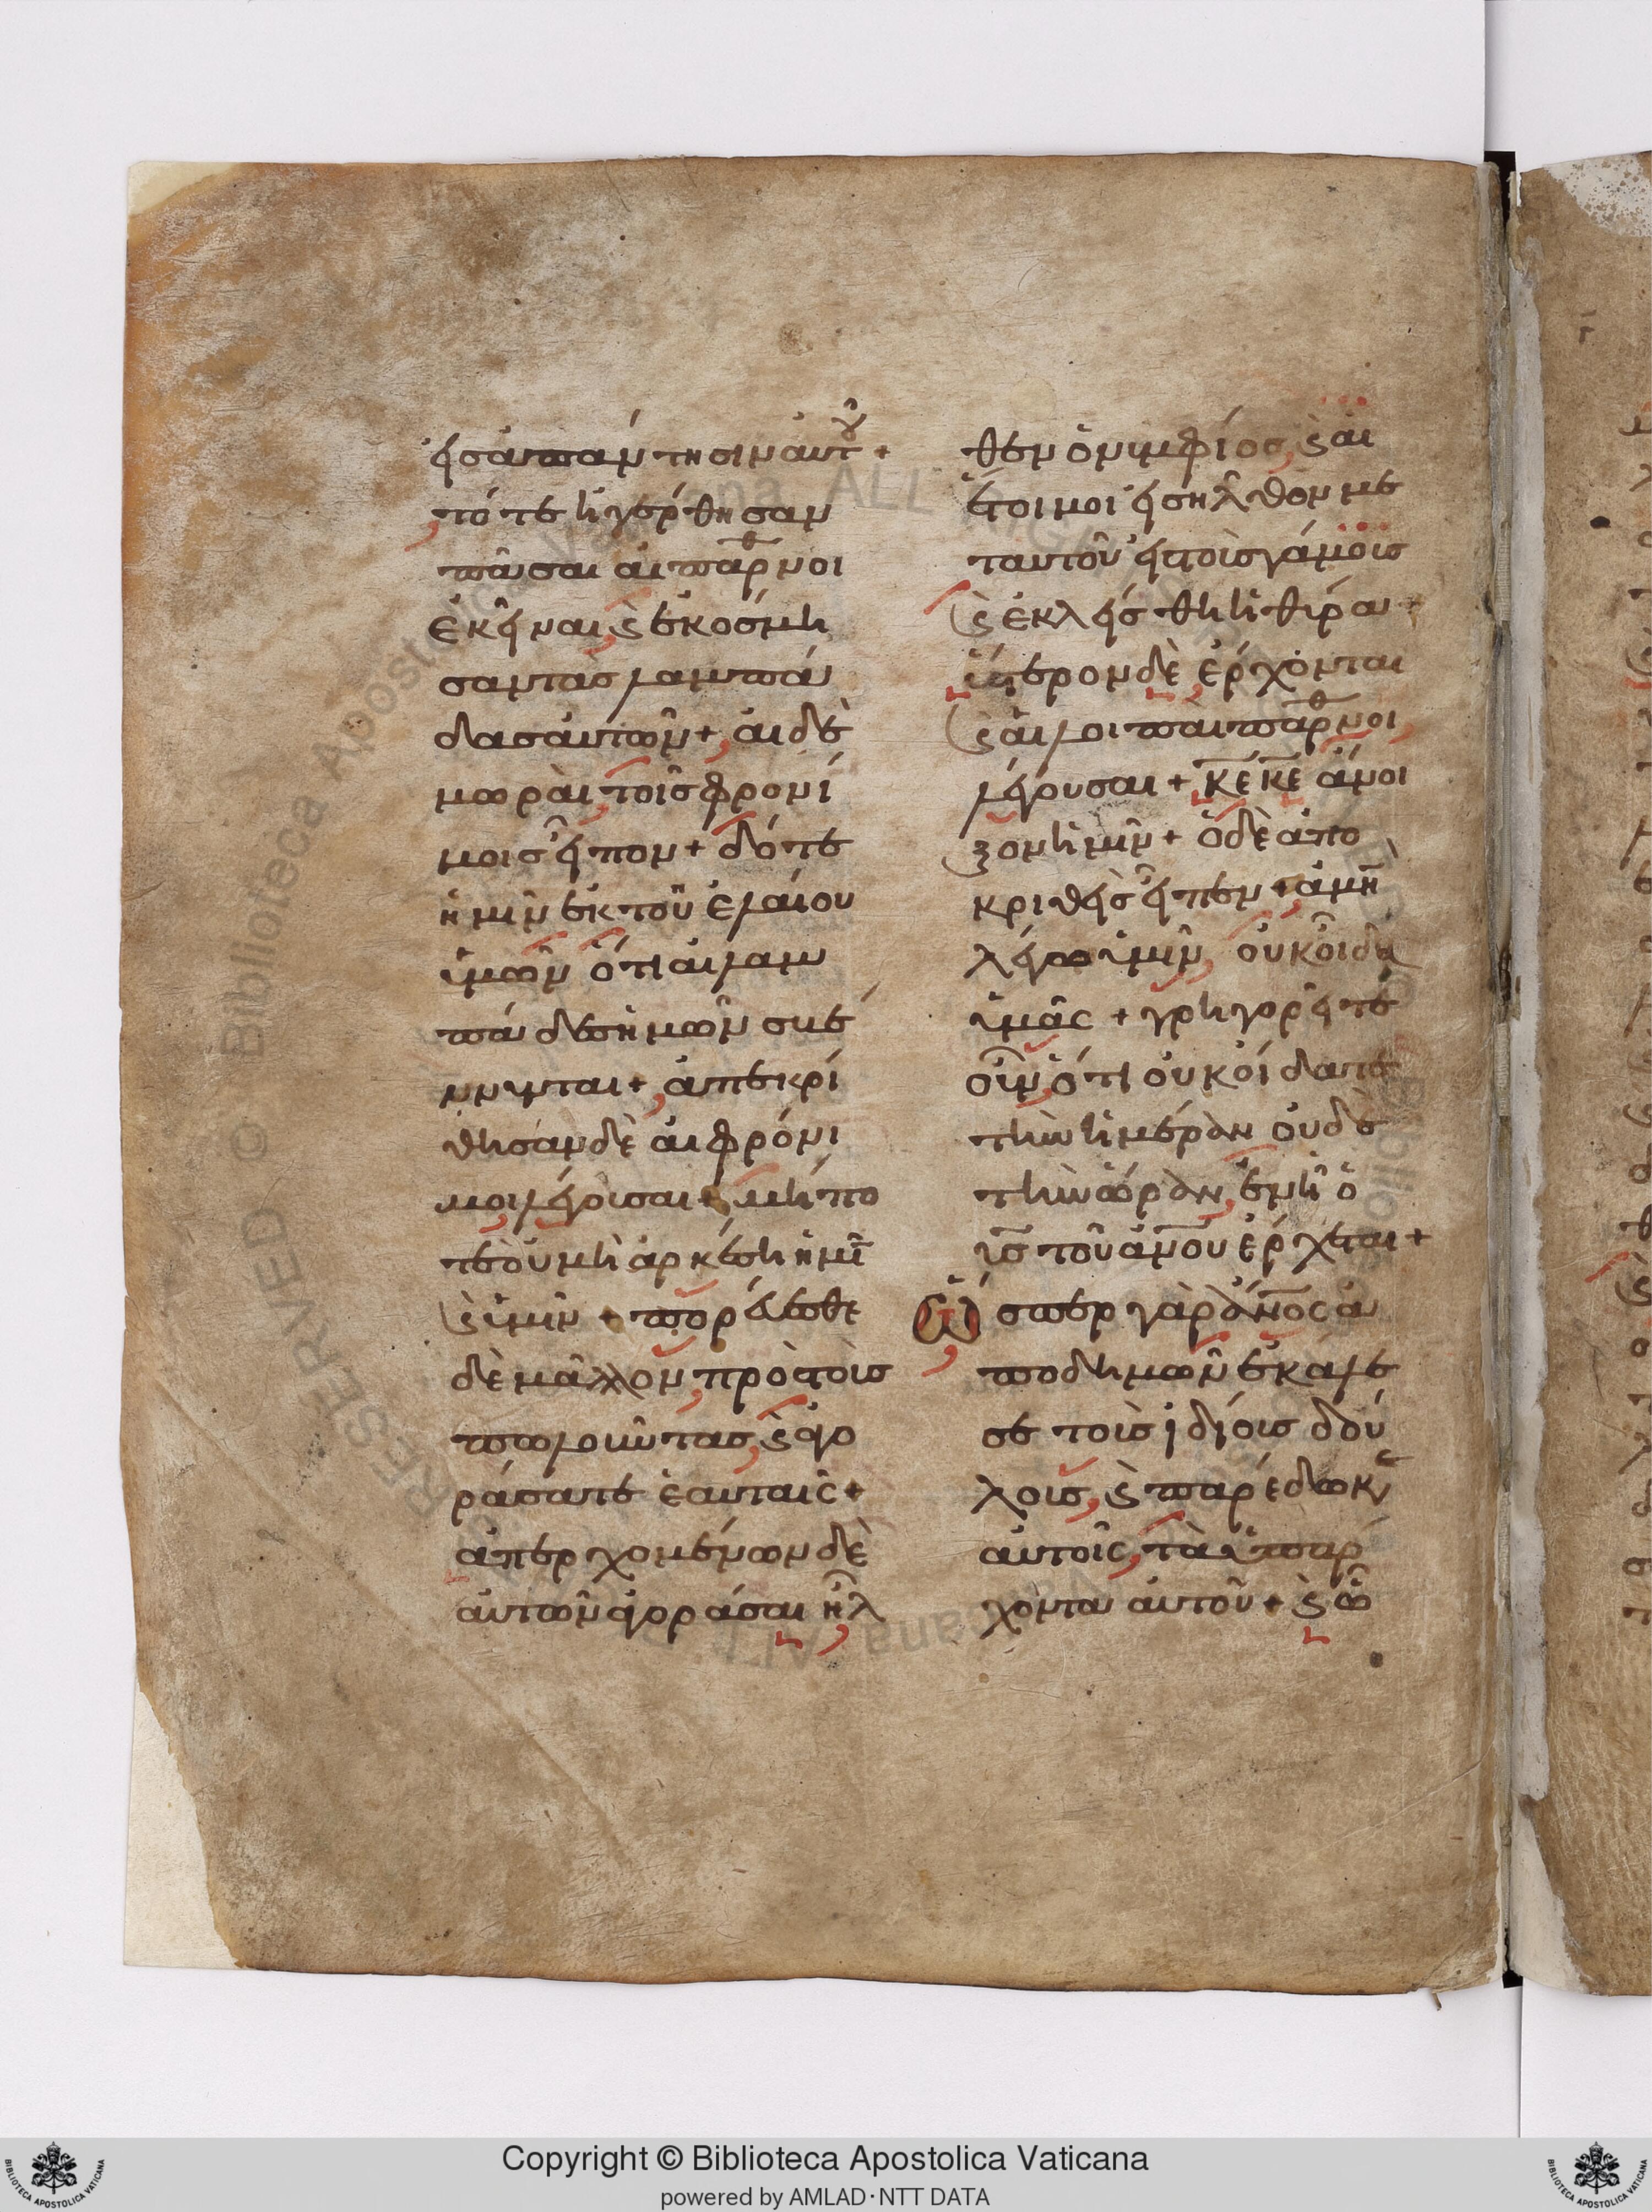 εἰς ἀπάντησιν αὐτοῦ +
τότε ἠγέρθησαν
πᾶσαι αἱ παρθνοι
ἐκεῖναι, ϛ ἐκόσμη
σαν τὰς λαμπά
δας αὐτῶν + αἱ δὲ
μωραὶ, τοῖς φρονί
μοις εἶπον + δότε
ἡμῖν ἐκ τοῦ ἐλαίου
ὑμῶν ὅτι αἱ λαμ
πάδες ἡμῶν σβέ
ννυται +, ἀπεκρί
θησαν δὲ αἱ φρόνι
μοι λέγουσαι + μήπο
τε οὐ μὴ ἀρκέση ἡμῖ
ϛ ὑμῖν + πορεύεσθε
δὲ μᾶλλον, πρὸς τοὺς
πωλοῦντας, ϛ ἀγο
ράσατε ἑαυταῖς +
ἀπερχομένων δὲ
αὐτῶν ἀγοράσαι ἦλ
θεν ὁ νυμφίος, ϛ αἱ
ἕτοιμοι εἰσῆλθον με
τ αὐτοῦ εἰς τοὺς γάμους
ϛ ἐκλείσθη ἡ θύρα +
ὕστερον δὲ ἔρχονται
ϛ αἱ λοιπαὶ παρθνοι,
λέγουσαι + κε κε ἄνοι
ξον ἡμῖν + ὁ δὲ ἀπο
κριθεὶς εἶπεν + ἀμὴ
λέγω ὑμῖν, οὐκ οἶδα
ὑμᾶς + γρηγορεῖτε
οὖν, ὅτι οὐκ οἴδατε
τὴν ἡμέραν οὐδὲ
τὴν ὥραν, ἐν ᾗ ὁ
υς τοῦ ανου ἔρχεται +
Ὥσπερ γὰρ ανος ἀ
ποδημῶν ἐκάλε
σε τοὺς ἰδίους δού
λους, ϛ παρέδωκεν
αὐτοῖς, τὰ ὑπάρ
χοντα αὐτοῦ + ϛ ᾧ
Copyright © Biblioteca Apostolica Vaticana
powered by AMLAD·NTT DATA